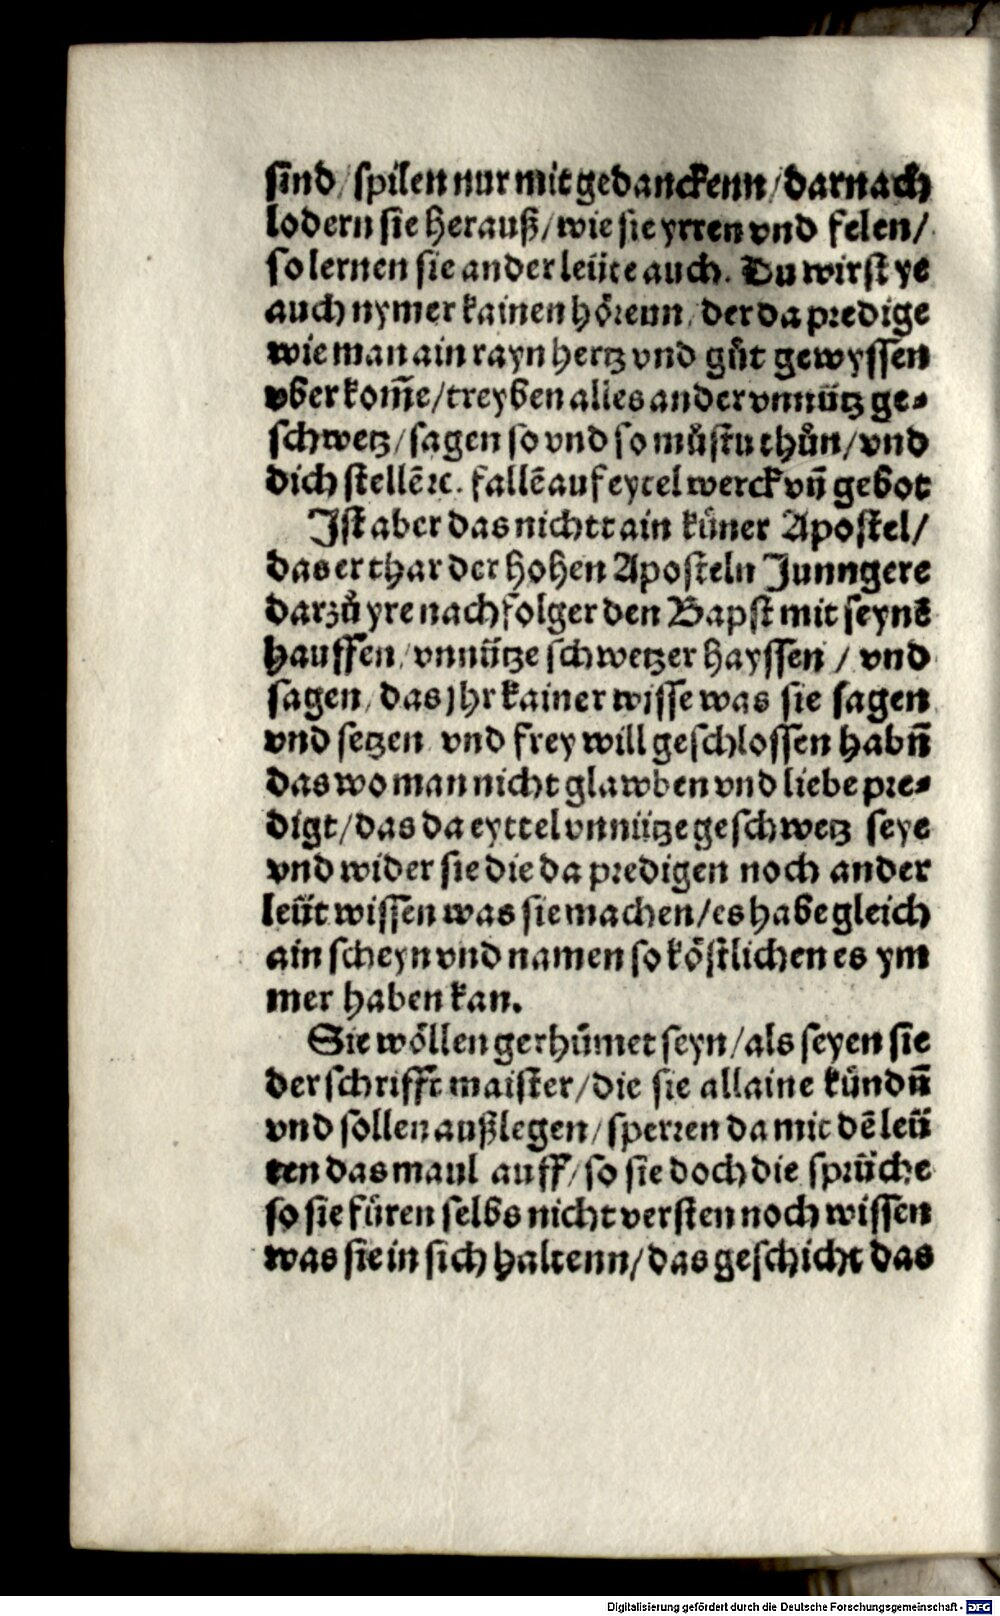 sind/spilen nur mit gedanckenn/darnach
lodern sie herauß/wie sie yrren vnd felen/
so lernen sie ander leüte auch. Du wirst ye
auch nymer kainen hörenn/der da predige
wie man ain rayn hertz vnd gůt gewyssen
vberkom̃e/treyben alles ander vnnütz ge⸗
schwetz/sagen so vnd so můstu thůn/vnd
dich stellẽ ⁊c. fallẽ auf eytel werck vñ gebot
Ist aber das nichtt ain küner Apostel/
das er thar der hohen Aposteln Junngere
darzů yre nachfolger den Bapst mit seynẽ
hauffen/vnnütze schwetzer hayssen/vnd
sagen/das jhr kainer wisse was sie sagen
vnd setzen vnd frey will geschlossen habñ
das wo man nicht glawben vnd liebe pre⸗
digt/das da eyttel vnnütze geschwetz seye
vnd wider sie die da predigen noch ander
leüt wissen was sie machen/es habe gleich
ain scheyn vnd namen so köstlichen es ym
mer haben kan.
Sie wöllen gerhümet seyn/als seyen sie
der schrifft maister/die sie allaine kündñ
vnd sollen außlegen/sperren da mit dẽ leü
ten das maul auff/so sie doch die sprüche
so sie füren selbs nicht versten noch wissen
was sie in sich haltenn/das geschicht das
Digitalisierung gefördert durch die Deutsche Forschungsgemeinschaft - DFG